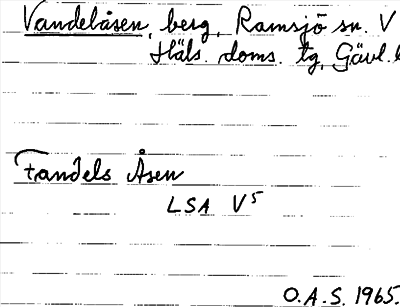 Vandelåsen, berg, Ramsjö sn. V
Häls. doms. tg, Gävl.
Fandels Åsen
LSA V5
O.A.S. 1965.